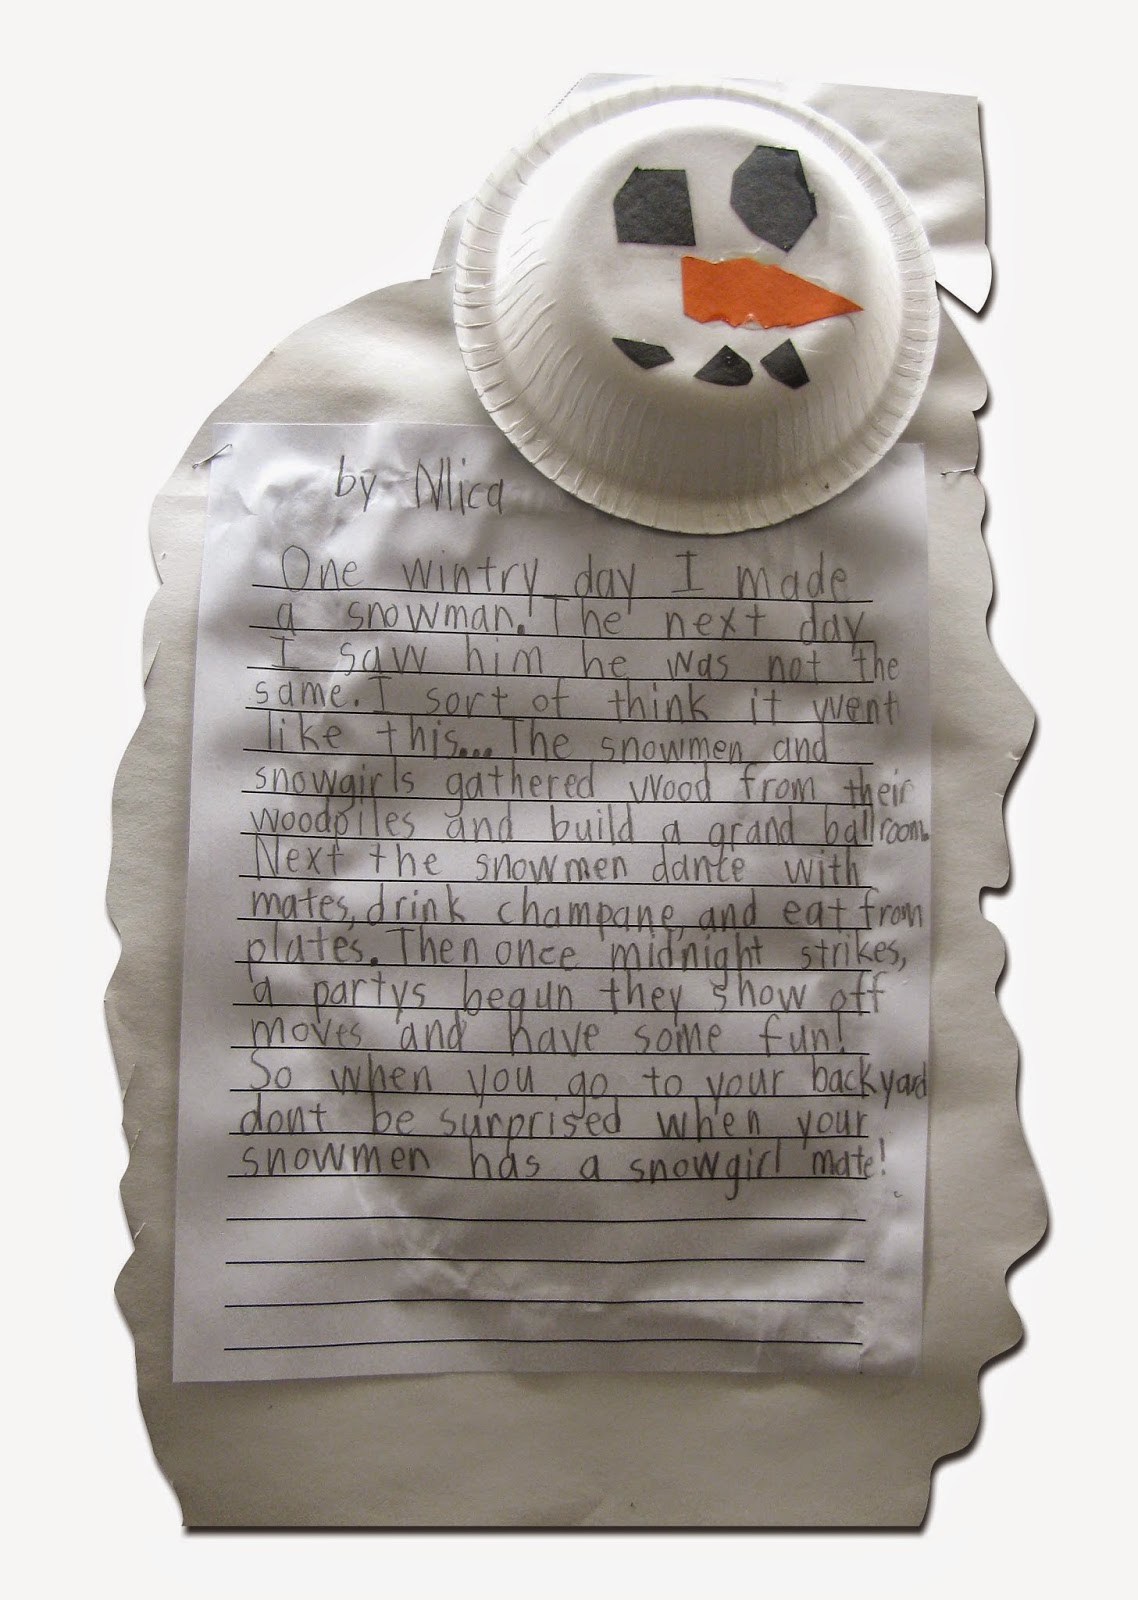 by Mica
One wintry day I made
a snowman. The next day
I saw him he was not the
same. I sort of think it went
like this... The snowmen and
snowgirls gathered wood from their
woodpiles and build a grand ballroom.
Next the snowmen dance with
mates, drink champane, and eat from
plates. Then once midnight strikes,
a partys begun they show off
moves and have some fun!
So when you go to your backyard
dont be surprised when your
snowmen has a snowgirl mate!